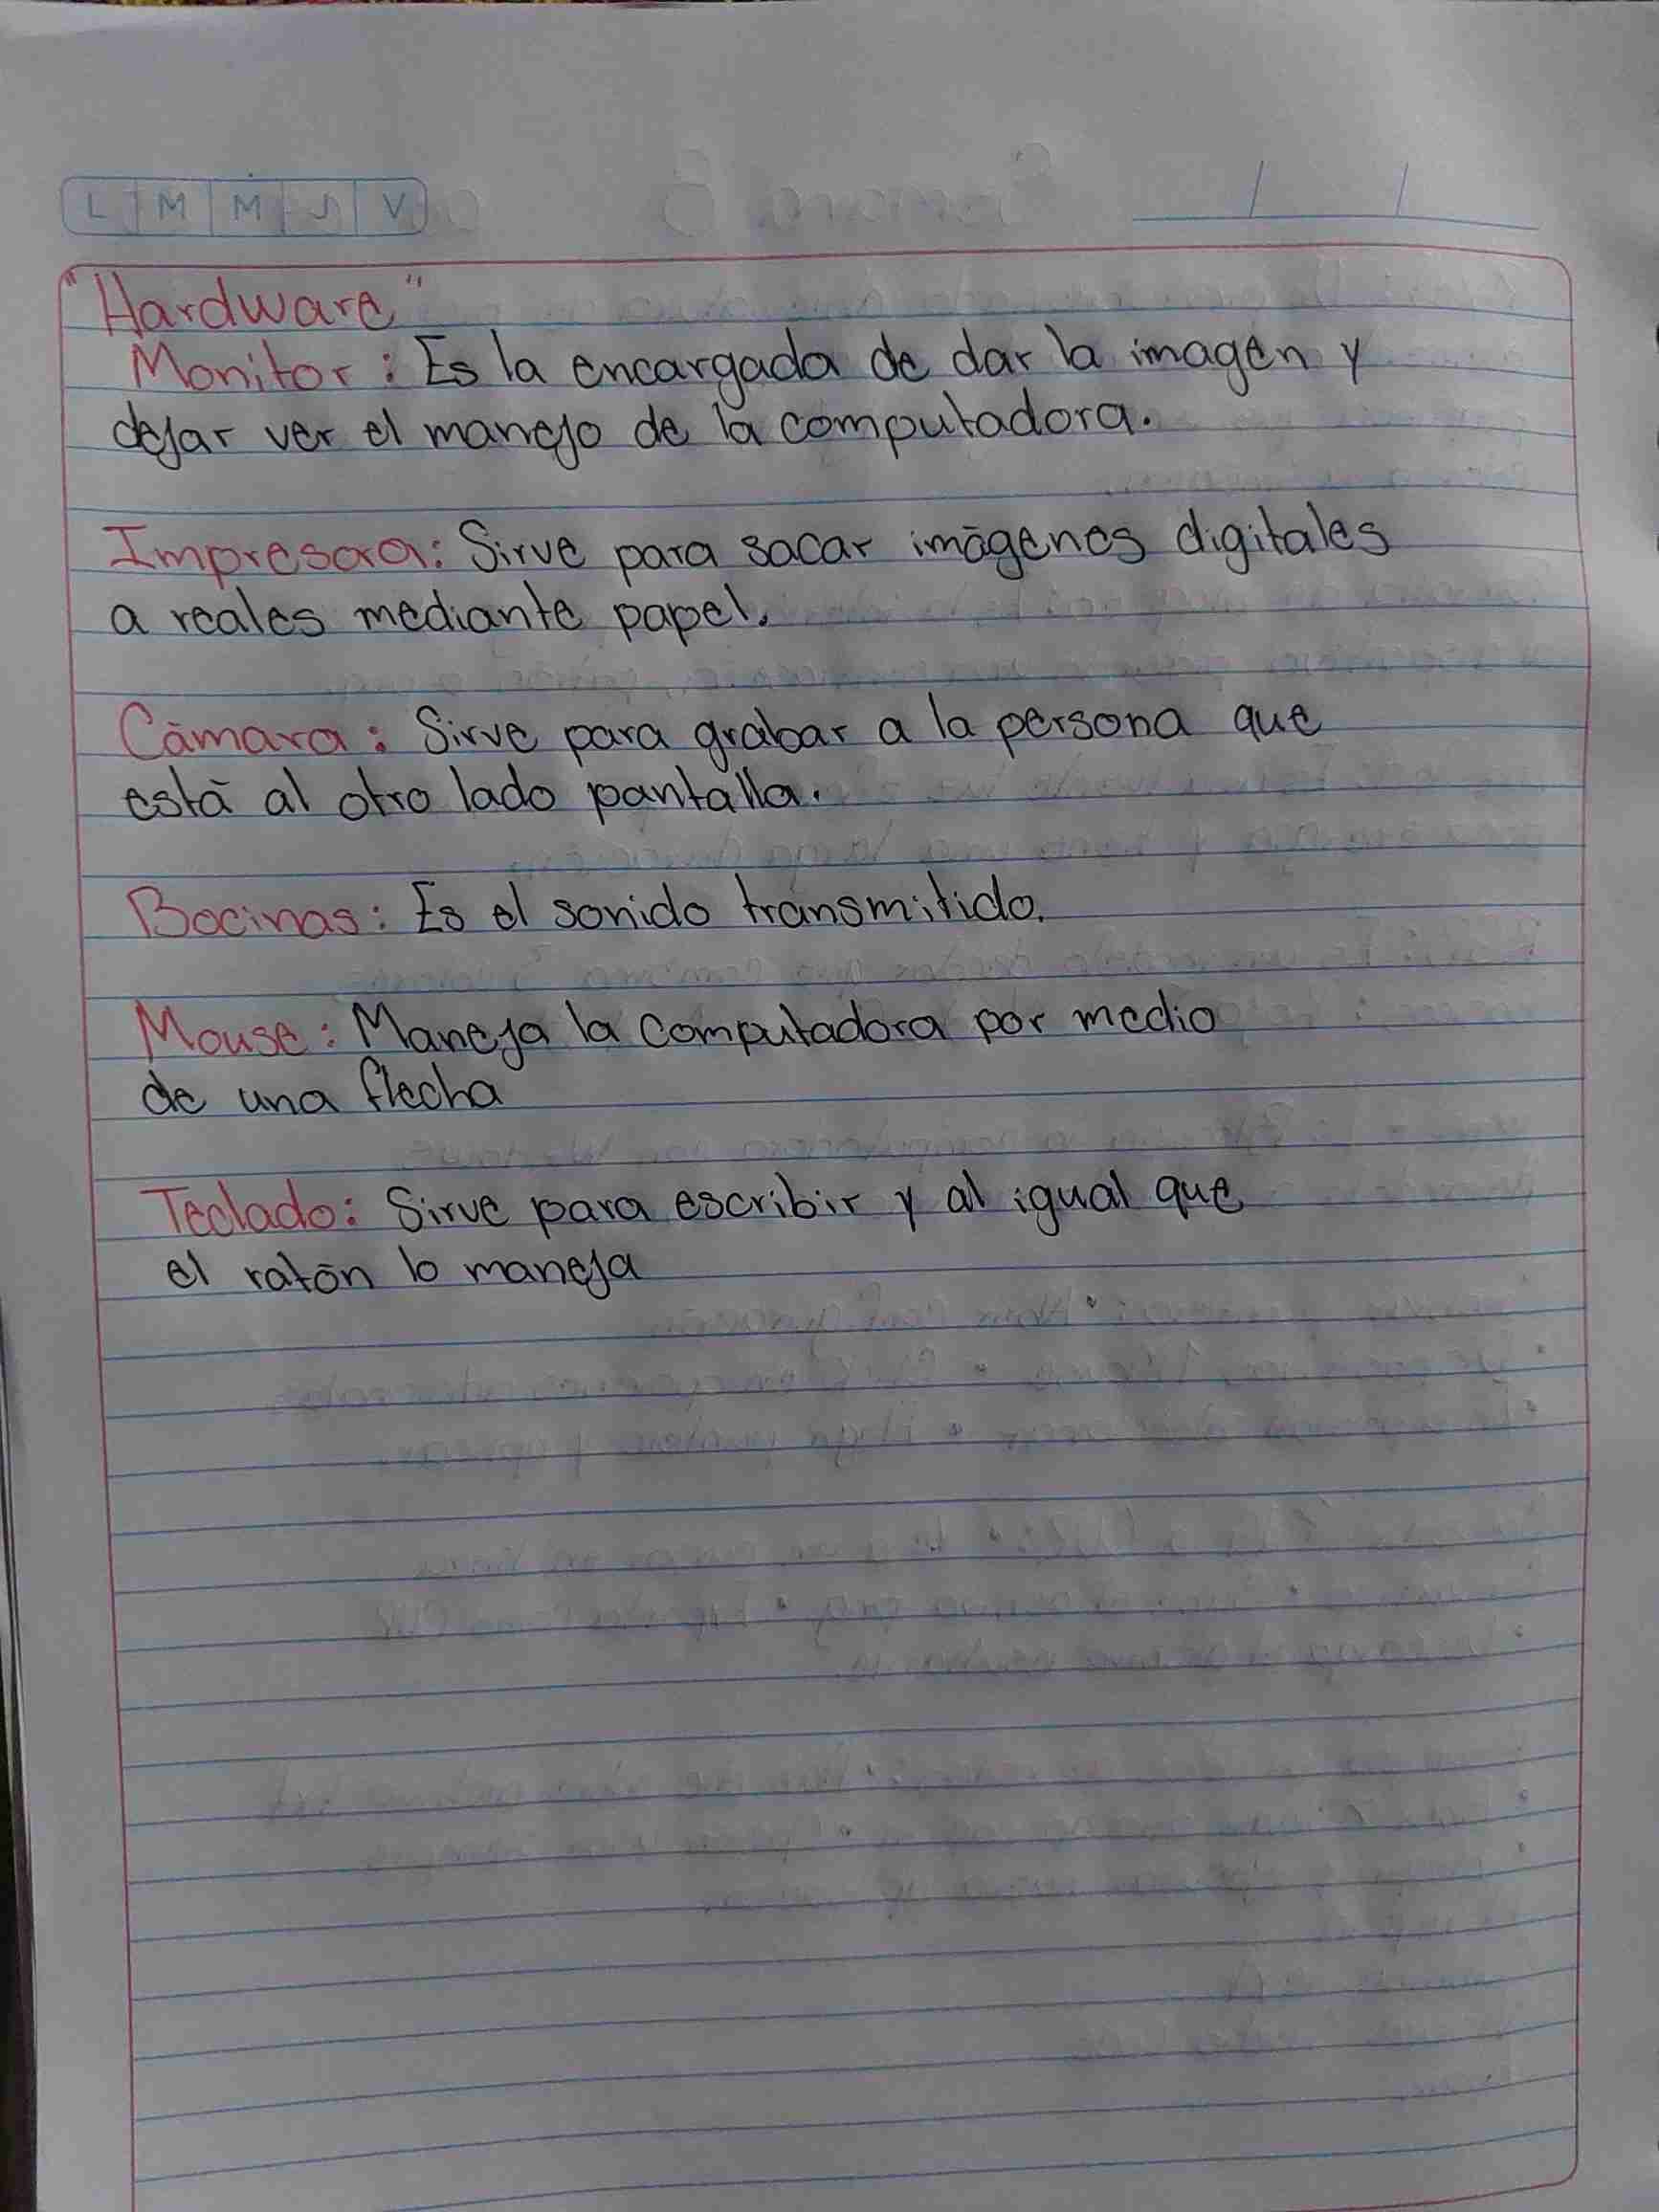 L M M J V
"Hardware"
Monitor: Es la encargada de dar la imagen y
dejar ver el manejo de la computadora.
Impresora: Sirve para sacar imágenes digitales
a reales mediante papel.
Cámara: Sirve para grabar a la persona que
está al otro lado pantalla.
Bocinas: Es el sonido transmitido.
Mouse: Maneja la computadora por medio
de una flecha
Teclado: Sirve para escribir y al igual que
el ratón lo maneja